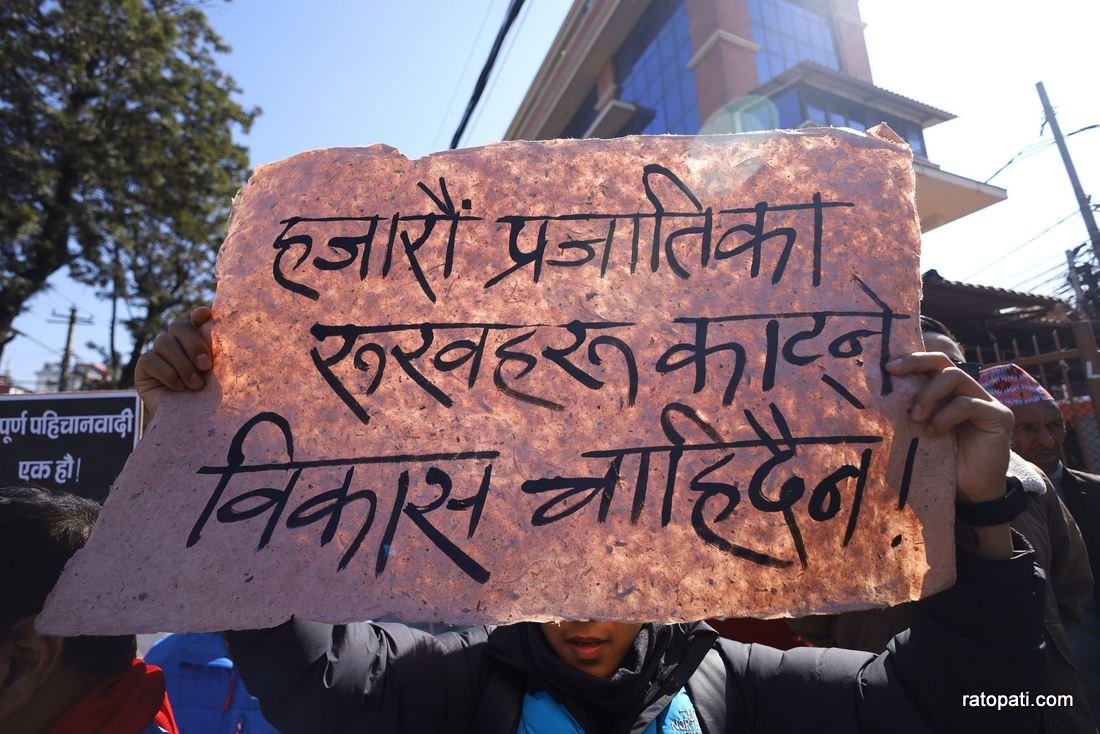 हजारौं प्रजातिका
रूखहरू काट्ने
विकास चाहिदैन!
पूर्ण पहिचानवादी
एक हौ!
THE
NORTH
ratopati.com